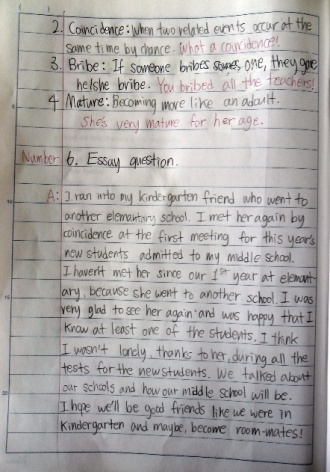 2. Coincidence: When two related events occur at the
same time by chance. What a coincidence!!
3. Bribe: If someone bribes someone, they give
he/she bribe. You bribed all the teachers!
4 Mature: Becoming more like an adult.
She's very mature for her age.
Number 6. Essay question.
A: I ran into my kindergarten friend who went to
another elemantary school. I met her again by
coincidence at the first meeting for this year's
new students admitted to my middle school.
I haven't met her since our 1st year at elemant-
ary, because she went to another school. I was
very glad to see her again and was happy that I
know at least one of the students. I think
I wasn't lonely, thanks to her, during all the
tests for the new students. We talked about
our schools and how our middle school will be.
I hope we'll be good friends like we were in
kindergarten and maybe, become room-mates!